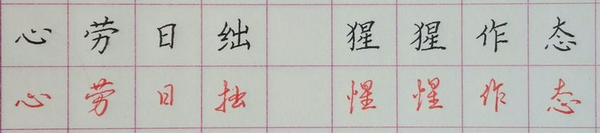 心劳日绌 猩猩作态
心劳日拙 惺惺作态